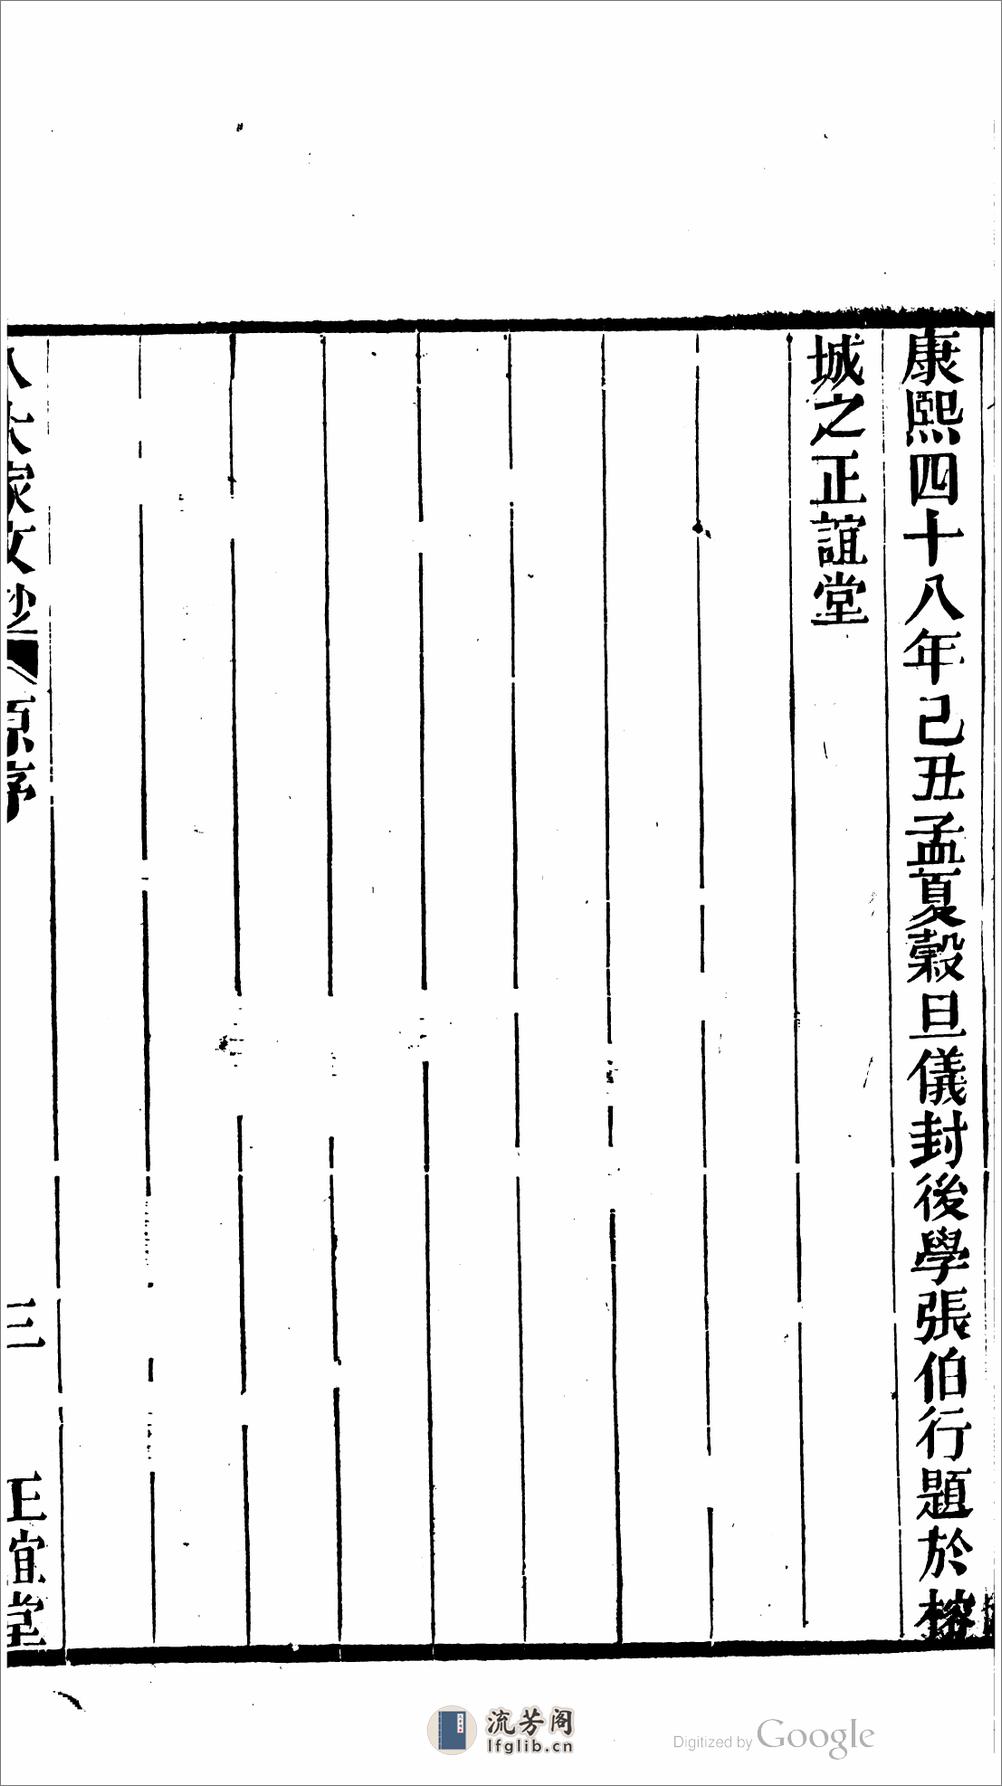 康熙四十八年己丑孟夏穀旦儀封後學張伯行題於榕
城之正誼堂
八大家文鈔 原序 三 正誼堂
流芳阁
lfglib.cn
Digitized by Google